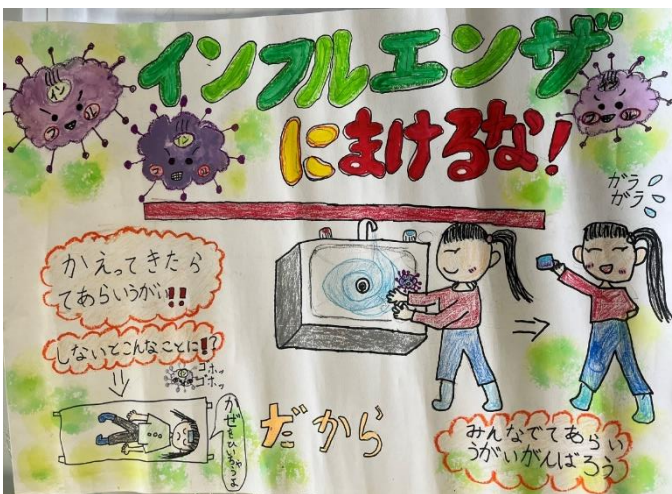 インフルエンザ
にまけるな!
イン
フル
イン
フル
イン
フル
ガラ
ガラ
かえってきたら
てあらいうがい!!
しないとこんなことに!?
ゴホッ
ゴホッ
かぜをひいちゃうよ
だから
みんなでてあらい
うがいがんばろう